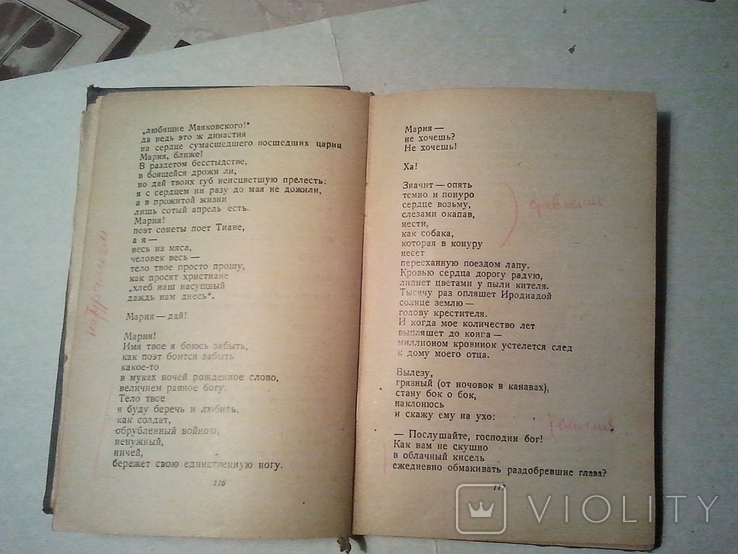 „любящие Маяковского!"
да ведь это ж династия
на сердце сумасшедшего восшедших цариц
Мария, ближе!
В раздетом бесстыдстве,
в боящейся дрожи ли,
но дай твоих губ неисцветшую прелесть:
я с сердцем ни разу до мая не дожили,
а в прожитой жизни
лишь сотый апрель есть.
Мария!
поэт сонеты поет Тиане,
а я —
весь из мяса,
человек весь —
тело твое просто прошу,
как просят христиане
„хлеб наш насущный
даждь нам днесь".
Мария — дай!
Мария!
Имя твое я боюсь забыть,
как поэт боится забыть
какое-то
в муках ночей рожденное слово,
величием равное богу.
Тело твое
я буду беречь и любить,
как солдат,
обрубленный войною,
ненужный,
ничей,
бережет свою единственную ногу.
116
Мария —
не хочешь?
Не хочешь!
Ха!
Значит — опять
темно и понуро
сердце возьму,
слезами окапав,
нести,
как собака,
которая в конуру
несет
перееханную поездом лапу.
Кровью сердца дорогу радую,
липнет цветами у пыли кителя.
Тысячу раз опляшет Иродиадой
солнце землю —
голову крестителя.
И когда мое количество лет
выпляшет до конца —
миллионом кровинок устелется след
к дому моего отца.
Вылезу,
грязный (от ночовок в канавах),
стану бок о бок,
наклонюсь
и скажу ему на ухо:
— Послушайте, господин бог!
Как вам не скушно
в облачный кисель
ежедневно обмакивать раздобревшие глаза?
117
сравнение
VIOLITY